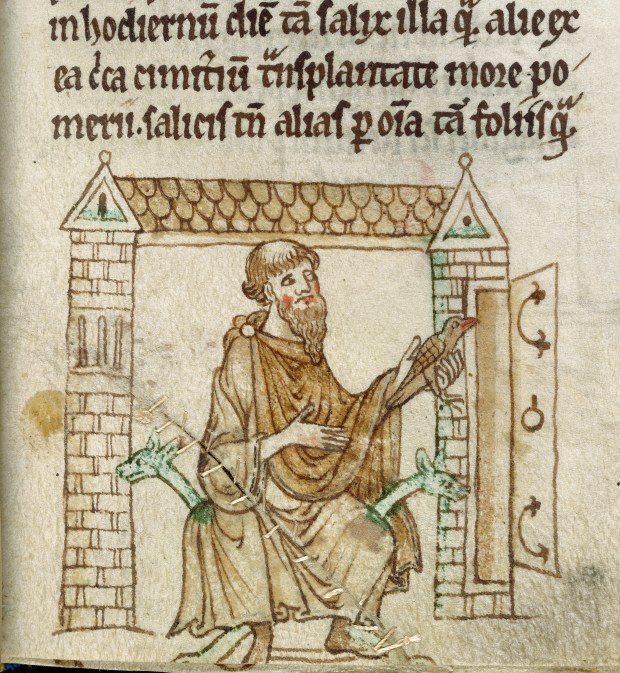 in hodiernū diē tā salix illa qͣ alie ex
ea c̄ca cimit̄iū tͣnsplantate more po
merii. salicis tn̄ alias ꝑ oīa tā foliisqͣ